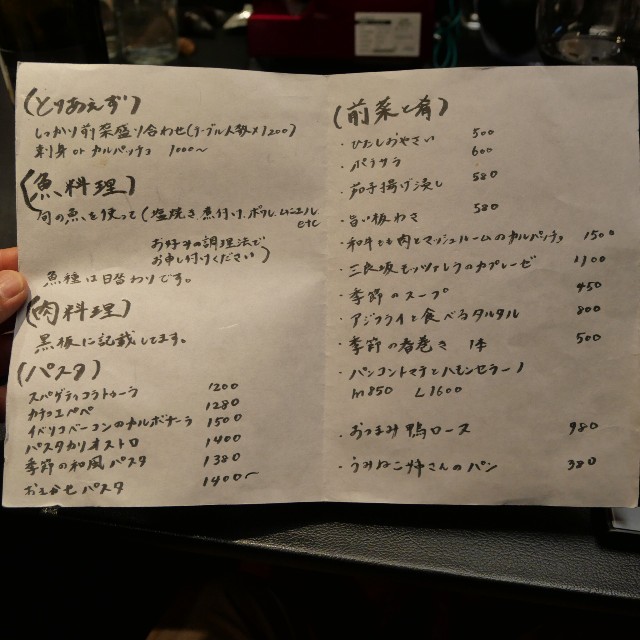 (とりあえず)
しっかり前菜盛り合わせ(テーブル人数×1200)
刺身 or カルパッチョ 1000〜
(魚料理)
旬の魚を使って(塩焼き 煮付け、ポワレ、ムニエル、etc
お好みの調理法で
お申し付けください)
魚種は日替わりです。
(肉料理)
黒板に記載してます。
(パスタ)
スパゲティコラトゥーラ 1200
カチョエペペ 1280
イベリコベーコンのカルボナーラ 1500
パスタカリオストロ 1400
季節の和風パスタ 1380
おまかせパスタ 1400〜
(前菜と肴)
・ひたしおやさい 500
・ポテサラ 600
・茄子揚げ浸し 580
・旨い板わさ 580
・和牛もも肉とマッシュルームのカルパッチョ 1500
・三良坂モッツァレラのカプレーゼ 1100
・季節のスープ 450
・アジフライと食べるタルタル 800
・季節の春巻き 1本 500
・パンコントマテとハモンセラーノ
M850 L1600
・おつまみ鴨ロース 980
・うみねこ姉さんのパン 380